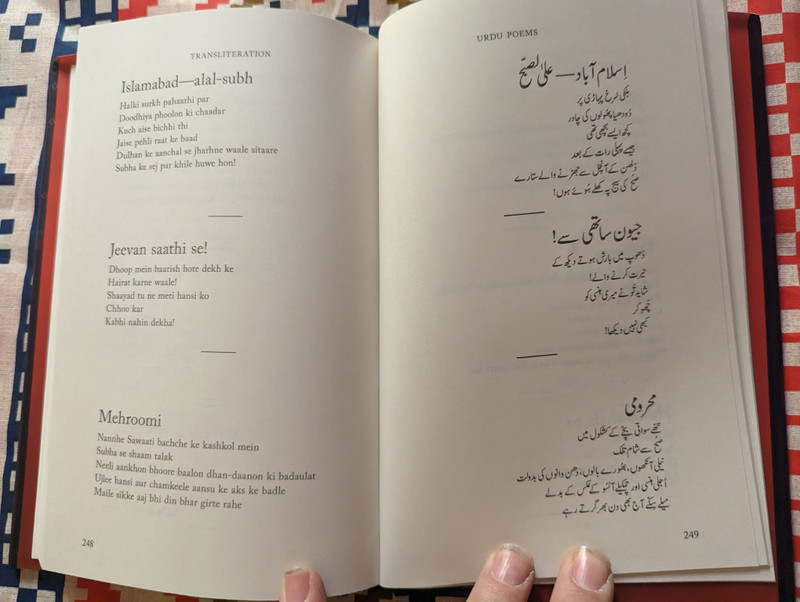 TRANSLITERATION
Islamabad—alal-subh
Halki surkh pahaarhi par
Doodhiya phoolon ki chaadar
Kuch aise bichhi thi
Jaise pehli raat ke baad
Dulhan ke aanchal se jharhne waale sitaare
Subha ke sej par khile huwe hon!
Jeevan saathi se!
Dhoop mein baarish hote dekh ke
Hairat karne waale!
Shaayad tu ne meri hansi ko
Chhoo kar
Kabhi nahin dekha!
Mehroomi
Nannhe Sawaati bachche ke kashkol mein
Subha se shaam talak
Neeli aankhon bhoore baalon dhan-daanon ki badaulat
Ujlee hansi aur chamkeele aansu ke aks ke badle
Maile sikke aaj bhi din bhar girte rahe
248
URDU POEMS
اِسلام آباد — علیٰ الصبّح
ہلکی سُرخ پہاڑی پر
دُودھیا پھُولوں کی چادر
کچھ ایسے بچھی تھی
جیسے پہلی رات کے بعد
دُلھن کے آنچل سے جھڑنے والے ستارے
صبُح کی سیج پہ کھِلے ہُوئے ہوں!
جیون ساتھی سے!
دُھوپ میں بارش ہوتے دیکھ کے
حیرت کرنے والے!
شاید تُو نے میری ہنسی کو
چھُو کر
کبھی نہیں دیکھا!
محرومی
ننھے سواتی بچّے کے کشکول میں
صبُح سے شام تلک
نیلی آنکھوں، بھُورے بالوں، دھن وانوں کی بدولت
اُجلی ہنسی اور چمکیلے آنسُو کے عکس کے بدلے
میلے سِکّے آج بھی دن بھر گرتے رہے
249